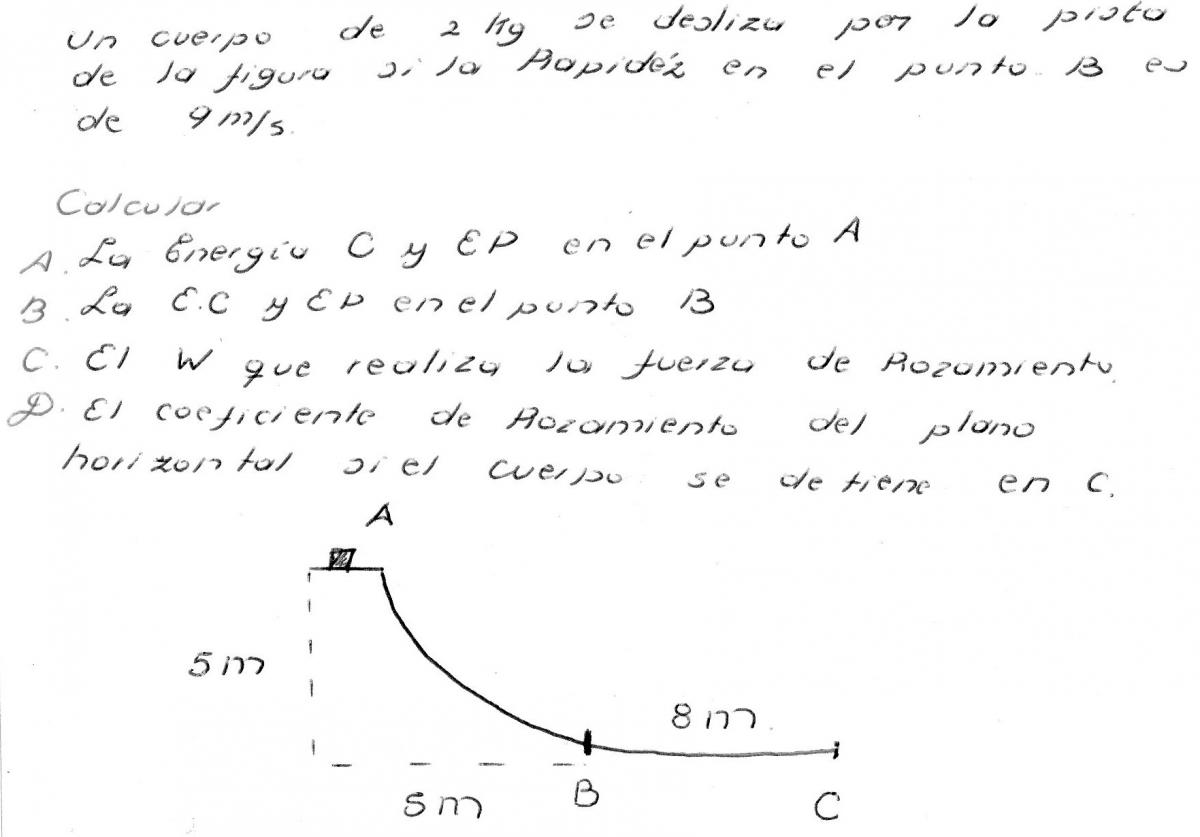 Un cuerpo de 2 Kg se desliza por la pista
de la figura si la Rapidéz en el punto B es
de 9 m/s.
Calcular
A. La Energía C y EP en el punto A
B. La E.C y EP en el punto B
C. El W que realiza la fuerza de Rozamiento.
D. El coeficiente de Rozamiento del plano
horizontal si el cuerpo se detiene en C.
A
5 m
8 m.
5 m
B
C